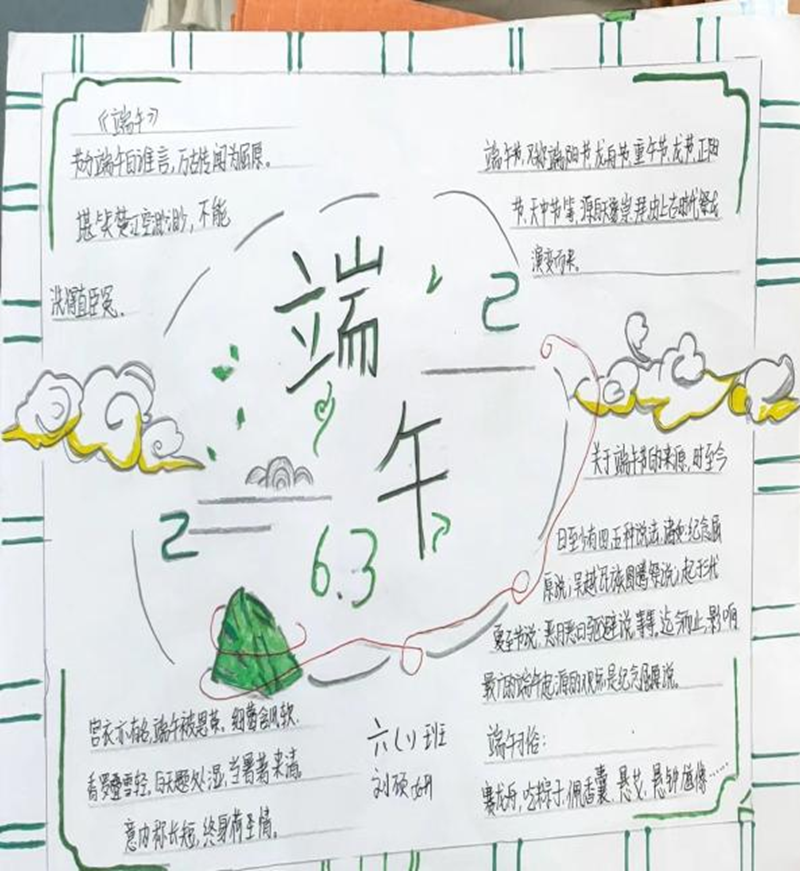 《端午》
节分端午自谁言，万古传闻为屈原。
堪笑楚江空渺渺，不能
洗得直臣冤。
端午节，又称端阳节、龙舟节、重午节、龙节、正阳
节、天中节等，源自天象崇拜，由上古时代祭龙
演变而来。
端
午
2
2
6.3
关于端午节的来源，时至今
日至少有四、五种说法，诸如：纪念屈
原说；吴越民族图腾祭说；起于三代
夏至节说；恶月恶日驱避说，等等。迄今为止，影响
最广的端午起源的观点是纪念屈原说。
宫衣亦有名，端午被恩荣。细葛含风软，
香罗叠雪轻。自天题处湿，当暑著来清。
意内称长短，终身荷圣情。
六（1）班
刘硕妍
端午习俗：
赛龙舟、吃粽子、佩香囊、悬艾、悬钟馗像……